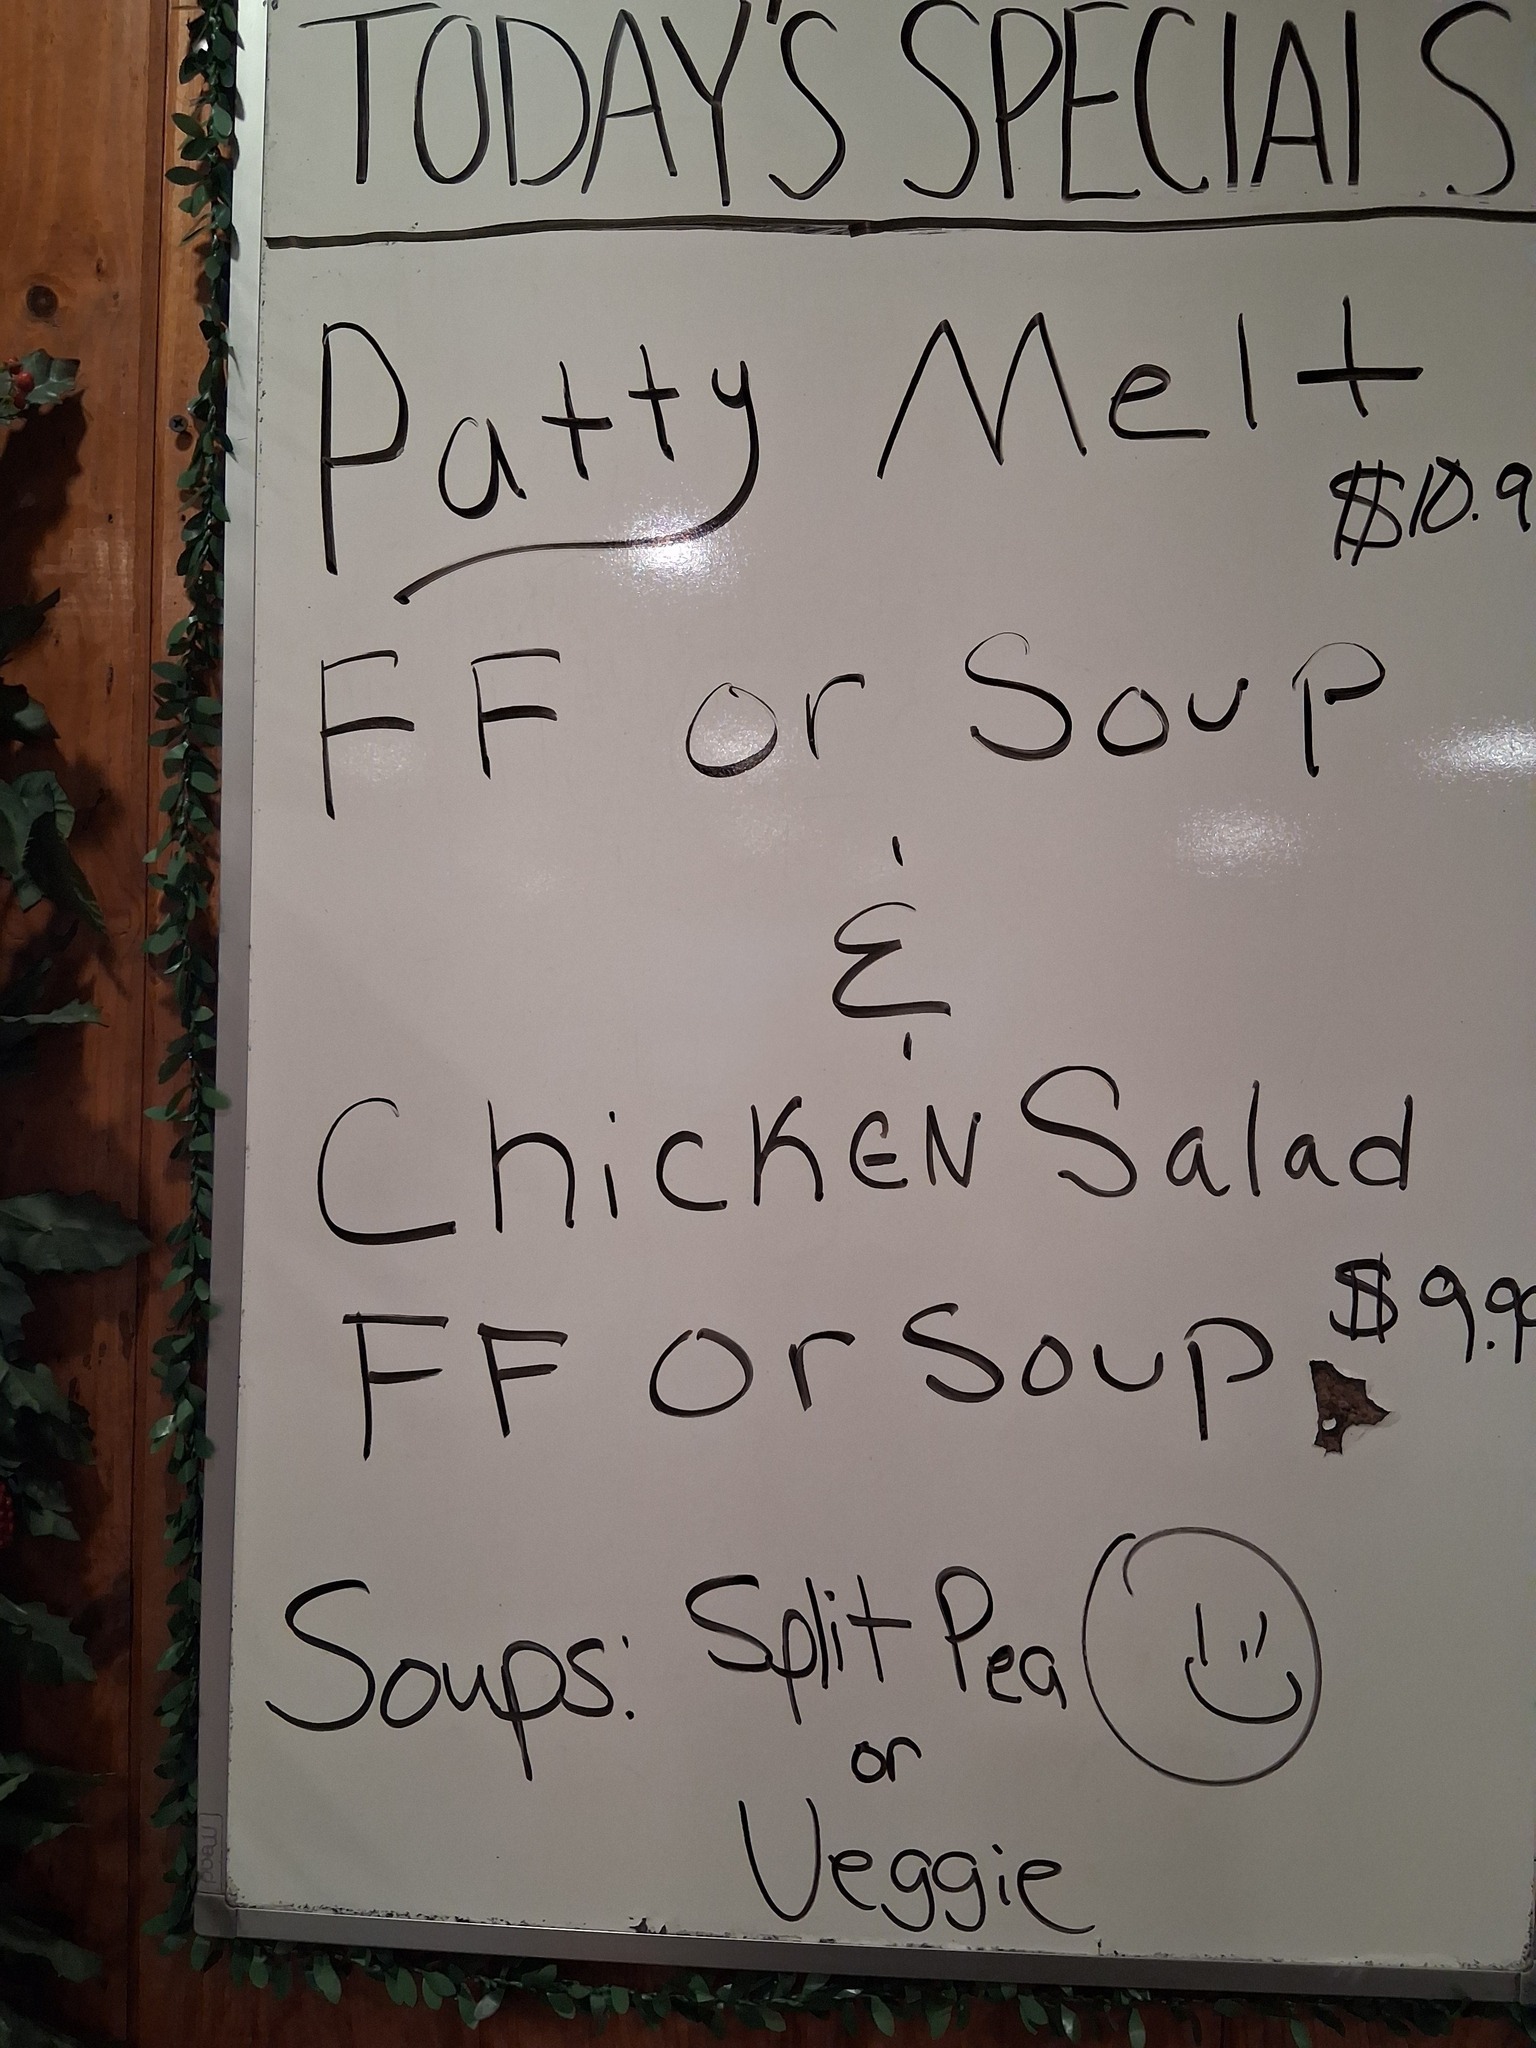 TODAY'S SPECIALS
Patty Melt
$10.9
FF or Soup
&
Chicken Salad
$9.9
FF or Soup
Soups: Split Pea
or
Veggie